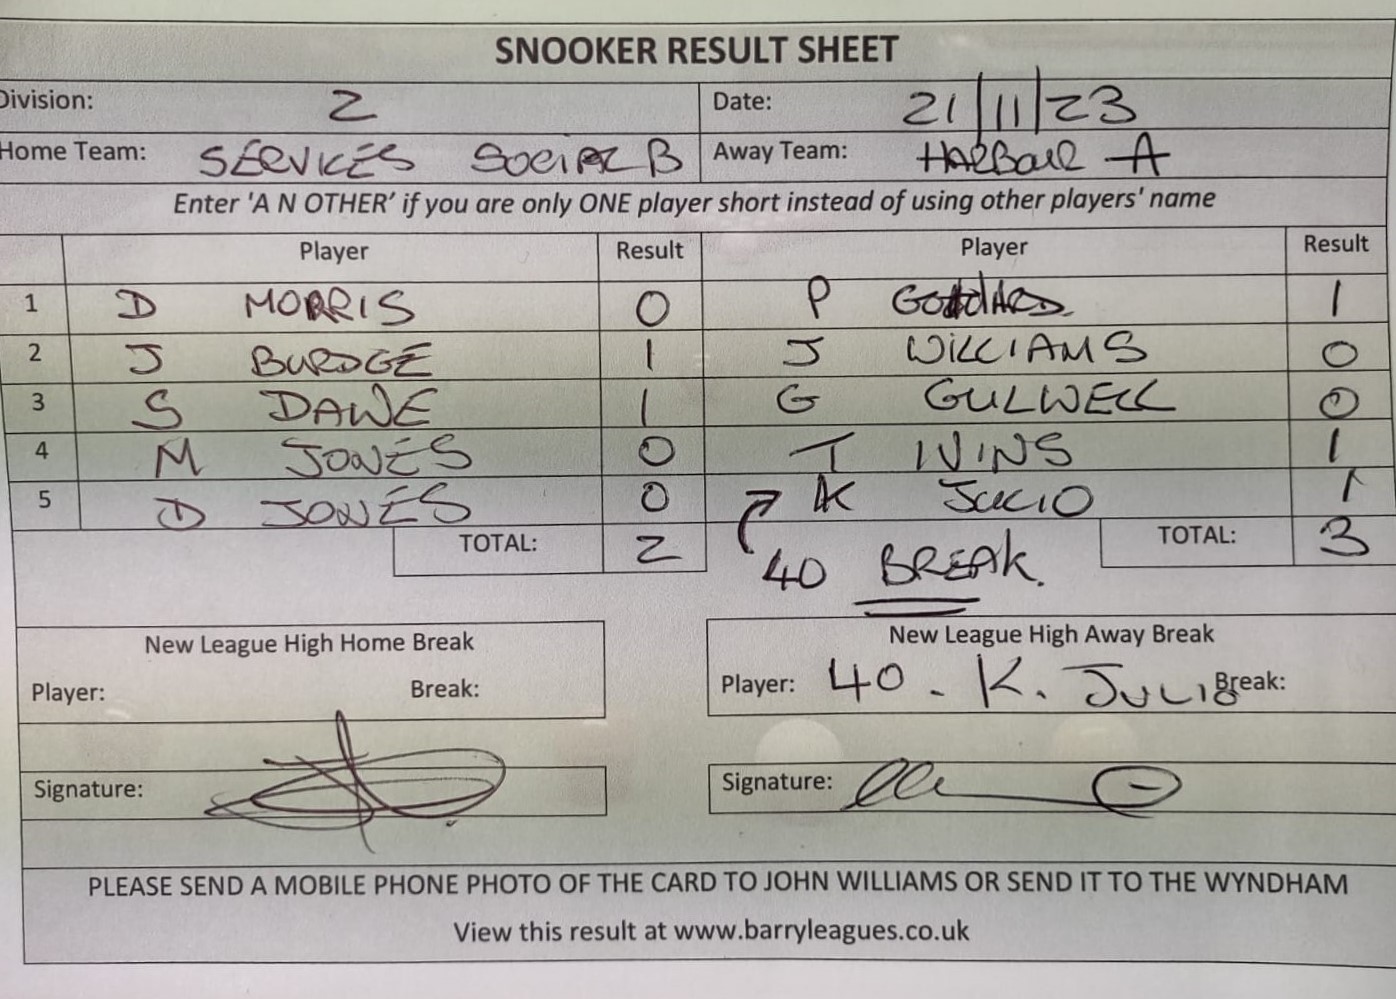 SNOOKER RESULT SHEET
Division: 2 Date: 21/11/23
Home Team: SERVICES SOCIAL B Away Team: HARBOUR A
Enter 'A N OTHER' if you are only ONE player short instead of using other players' name
Player Result Player Result
1 D MORRIS 0 P GODDARD 1
2 J BURDGE 1 J WILLIAMS 0
3 S DAWE 1 G GULWELL 0
4 M JONES 0 T IVINS 1
5 D JONES 0 K JULIO 1
TOTAL: 2 TOTAL: 3
40 BREAK.
New League High Home Break New League High Away Break
Player: Break: Player: 40 - K. JULIO Break:
Signature: Signature:
PLEASE SEND A MOBILE PHONE PHOTO OF THE CARD TO JOHN WILLIAMS OR SEND IT TO THE WYNDHAM
View this result at www.barryleagues.co.uk